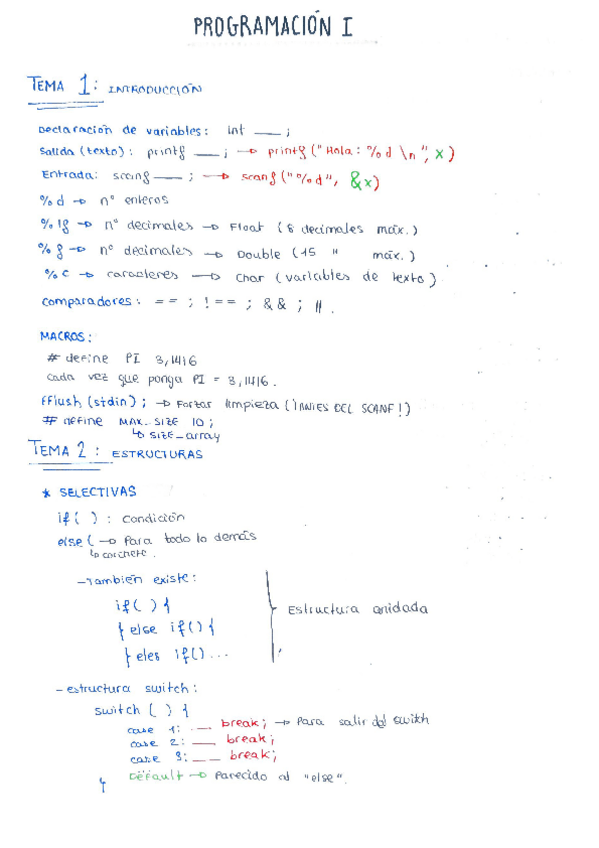 PROGRAMACIÓN I
TEMA 1: INTRODUCCIÓN
Declaración de variables: int ___;
Salida (texto): printf ___; → printf ("Hola: %d \n", x)
Entrada: scanf ___; → scanf ("%d", &x)
%d → nº enteros
%lf → nº decimales → Float (8 decimales máx.)
%f → nº decimales → Double (15 " máx.)
%c → caracteres → Char (variables de texto)
comparadores: == ; !== ; && ; ||.
MACROS:
# define PI 3,1416
Cada vez que ponga PI = 3,1416.
fflush (stdin); → Forzar limpieza (¡ANTES DEL SCANF!)
# define MAX_SIZE 10;
↳ SIZE_array
TEMA 2: ESTRUCTURAS
* SELECTIVAS
if ( ) : Condición
else { → Para todo lo demás
↳ corchete.
- También existe:
if( ) {
} else if() {
} eles if()...
Estructura anidada
- estructura switch:
switch ( ) {
case 1: __ break; → Para salir del switch
case 2: ___ break;
case 3: ___ break;
Default → Parecido al "else".
}